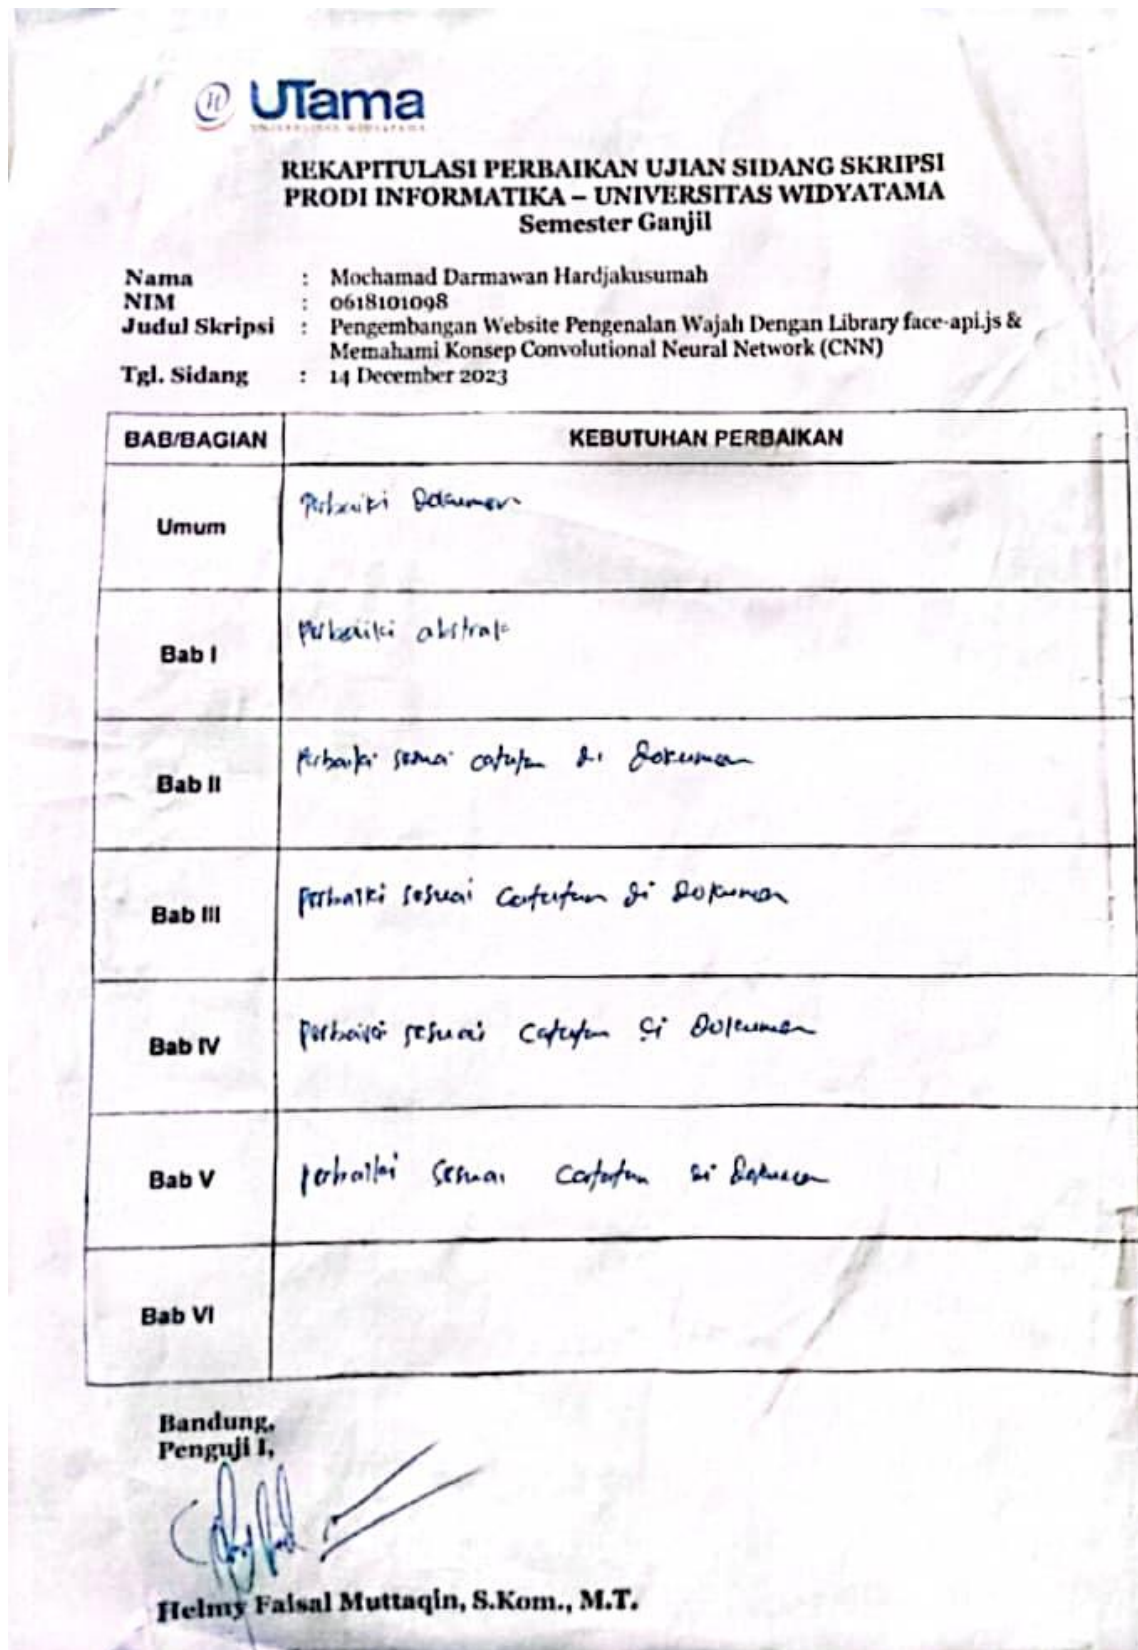 UTama
UNIVERSITAS WIDYATAMA
REKAPITULASI PERBAIKAN UJIAN SIDANG SKRIPSI
PRODI INFORMATIKA – UNIVERSITAS WIDYATAMA
Semester Ganjil
Nama : Mochamad Darmawan Hardjakusumah
NIM : 0618101098
Judul Skripsi : Pengembangan Website Pengenalan Wajah Dengan Library face-api.js &
Memahami Konsep Convolutional Neural Network (CNN)
Tgl. Sidang : 14 December 2023
BAB/BAGIAN KEBUTUHAN PERBAIKAN
Umum Perbaiki Dokumen
Bab I Perbaiki abstrak
Bab II Perbaiki sesuai catatan di Dokumen
Bab III perbaiki sesuai Catatan di Dokumen
Bab IV perbaiki sesuai catatan di Dokumen
Bab V perbaiki sesuai catatan di Dokumen
Bab VI
Bandung,
Penguji I,
Helmy Faisal Muttaqin, S.Kom., M.T.